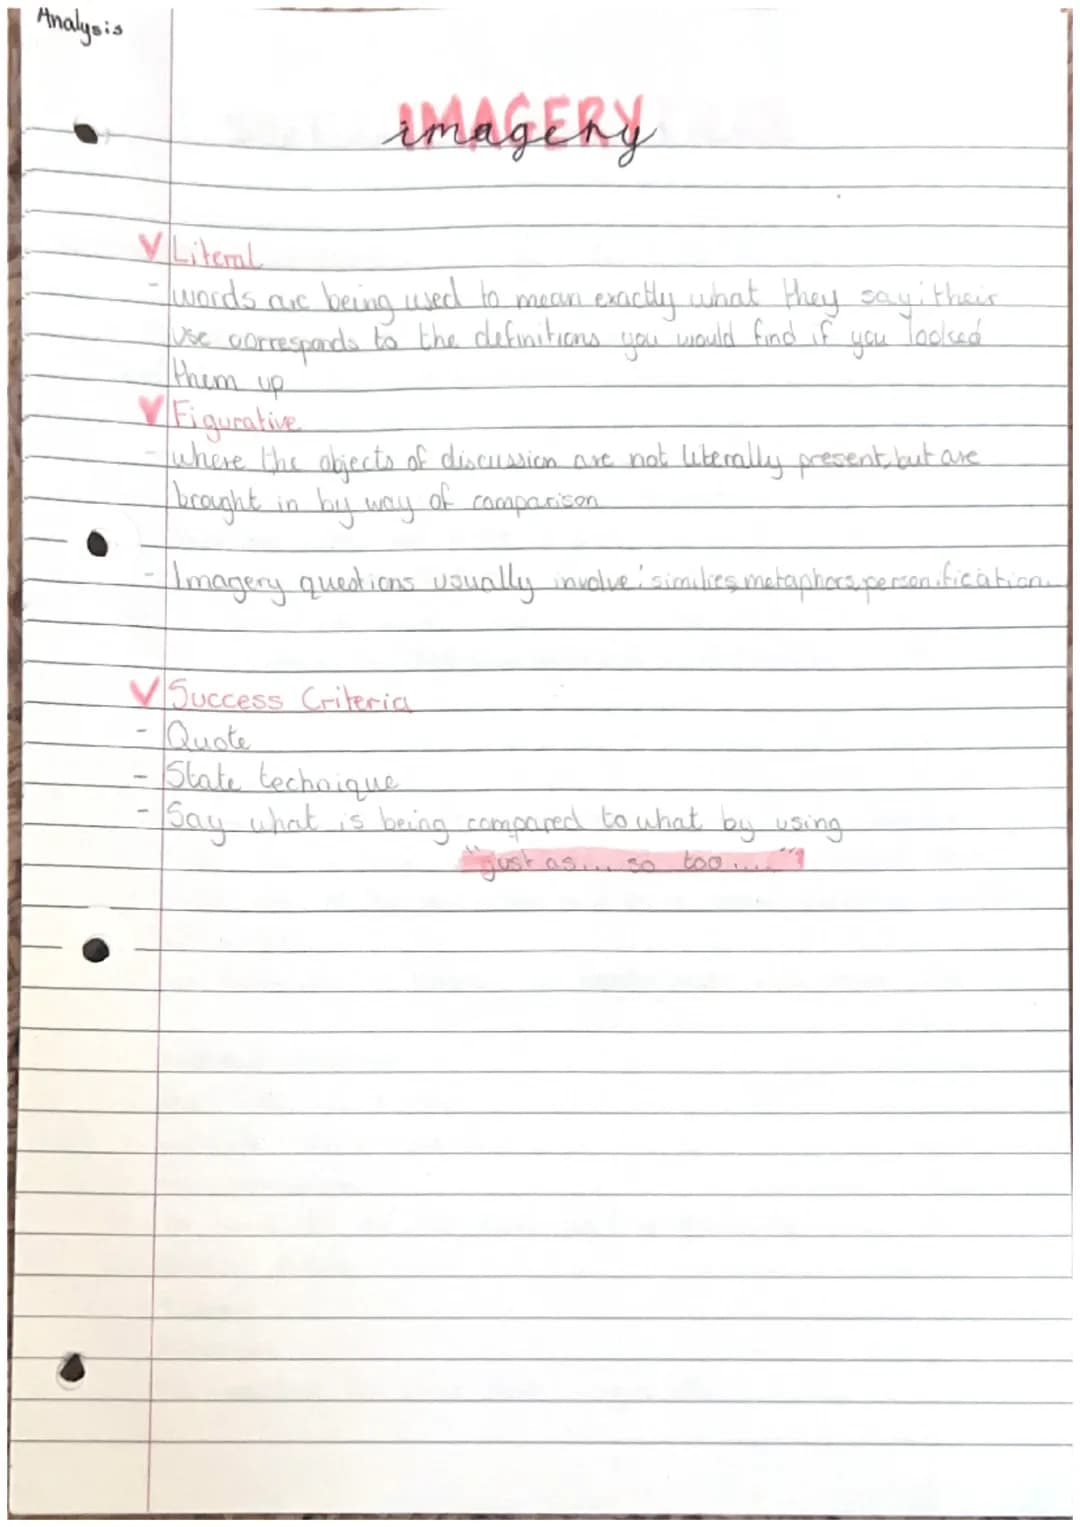 Analysis
IMAGERY
imagery
Literal
- words are being used to mean exactly what they say; their
use corresponds to the definitions you would find if you looked
them up
Figurative
- where the objects of discussion are not literally present, but are
brought in by way of comparison
- Imagery questions usually involve: similies, metaphors, personification.
Success Criteria
- Quote
- State technique
- Say what is being compared to what by using
"just as.... so too....."